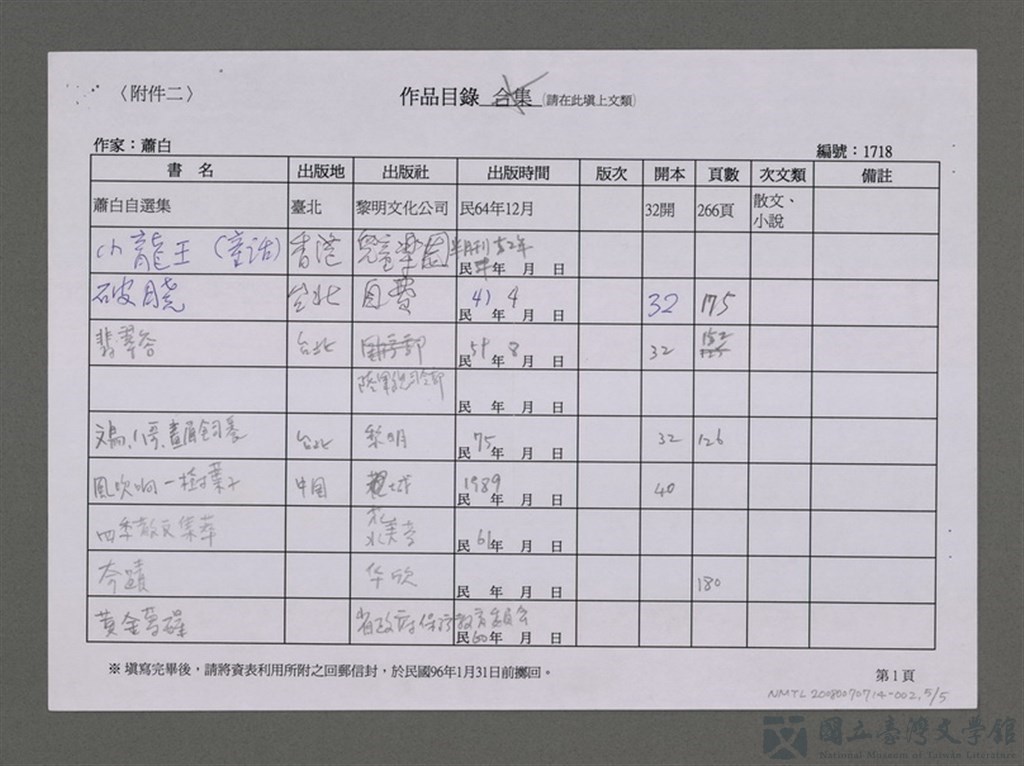 〈附件二〉
作品目錄 合集 (請在此填上文類)
作家：蕭白
編號：1718
書 名 出版地 出版社 出版時間 版次 開本 頁數 次文類 備註
蕭白自選集 臺北 黎明文化公司 民64年12月 32開 266頁 散文、
小說
小龍王（童话） 香港 兒童樂園 半月刊 52年
民 年 月 日
破曉 台北 自費 41 4 32 175
民 年 月 日
翡翠谷 台北 59 8 32 152
民 年 月 日
民 年 月 日
台北 黎明 75 32 126
民 年 月 日
風吹响一樹葉子 中國 1989 40
民 年 月 日
四季散文集萃 北美音 61
民 年 月 日
奇蹟 华欣 180
民 年 月 日
省政府 教育委員会
民60年 月 日
※ 填寫完畢後，請將資表利用所附之回郵信封，於民國96年1月31日前擲回。
第1頁
NMTL20080070714-002,5/5
國立臺灣文學館
National Museum of Taiwan Literature